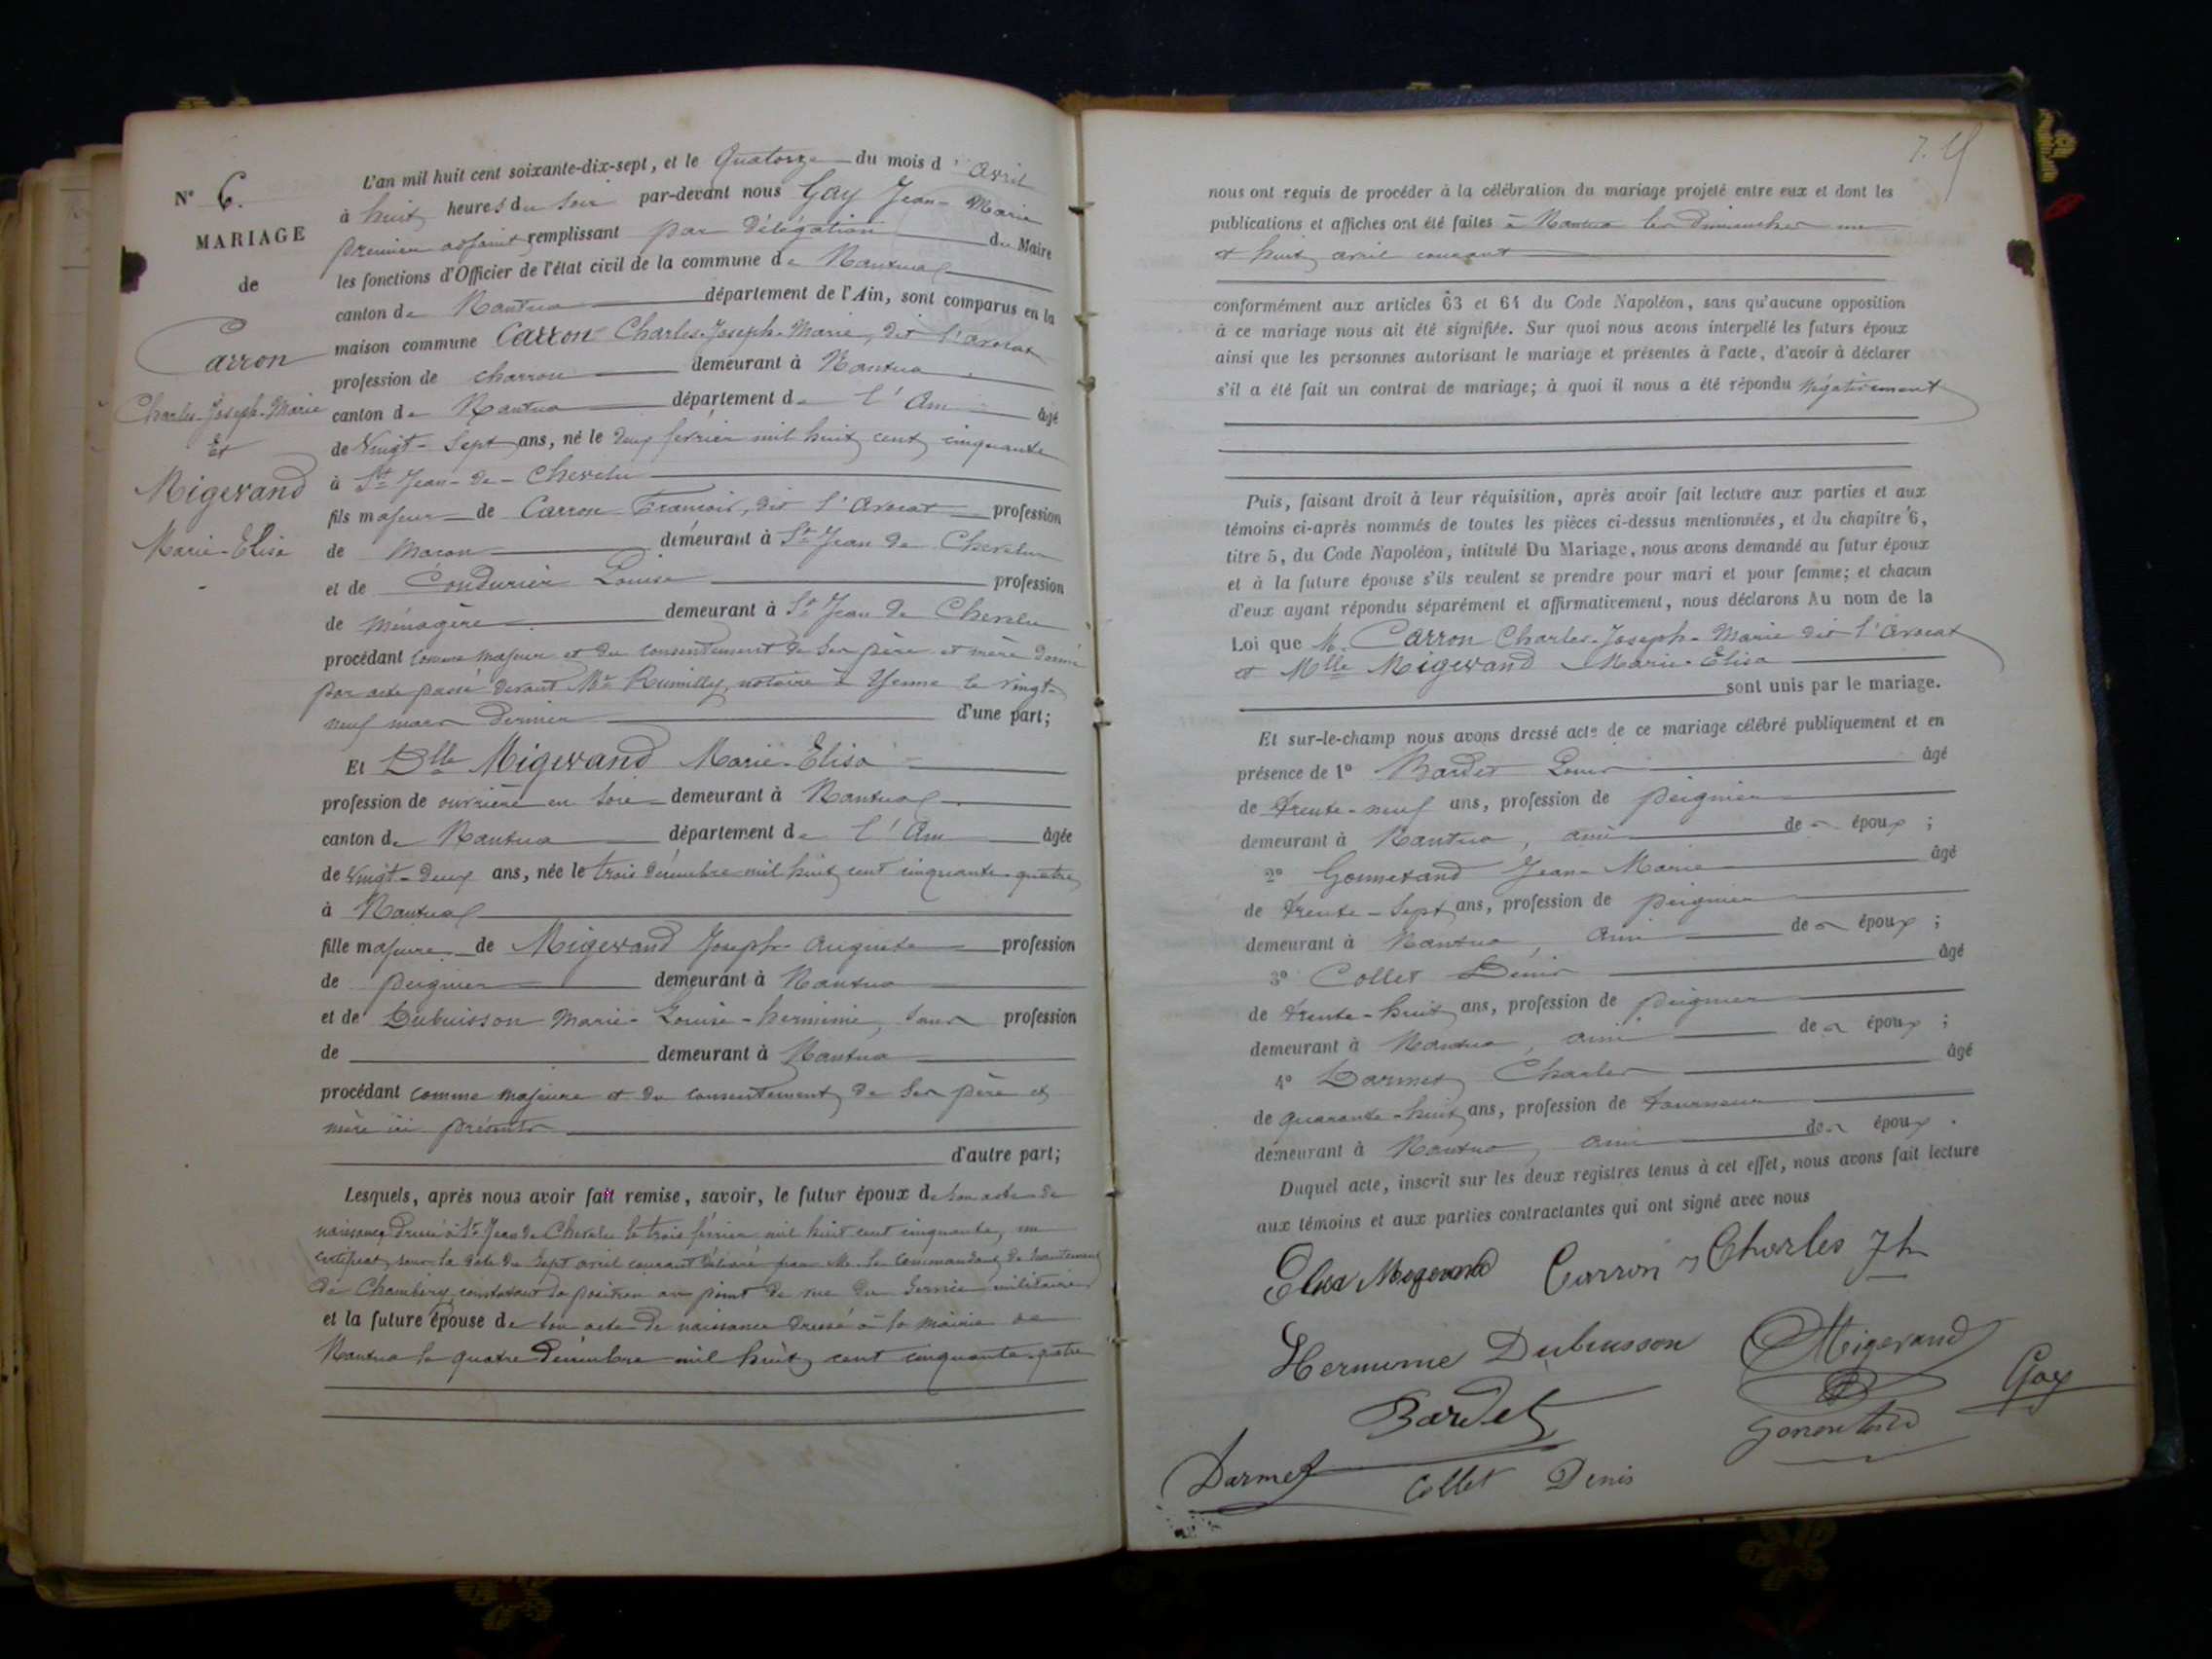 N° 6.
MARIAGE
de
Carron
Charles-Joseph-Marie
Et
Migerand
Marie-Elisa
L'an mil huit cent soixante-dix-sept, et le Quatorze du mois d'avril
à huit heures du soir par-devant nous Gay Jean-Marie
premier adjoint remplissant par délégation du Maire
les fonctions d'Officier de l'état civil de la commune de Nantua
canton de Nantua département de l'Ain, sont comparus en la
maison commune Carron Charles-Joseph-Marie, dit l'avocat
profession de charron demeurant à Nantua
canton de Nantua département de l'Ain âgé
de Vingt-Sept ans, né le deux février mil huit cent cinquante
à St Jean-de-Chevelu
fils majeur de Carron François, dit l'Avocat profession
de Maçon demeurant à St Jean de Chevelu
et de Coudurier Louise profession
de ménagère demeurant à St Jean de Chevelu
procédant comme majeur et du consentement de ses père et mère donné
par acte passé devant Me Rumilly, notaire à Yenne le vingt-
neuf mars dernier d'une part;
Et Dlle Migerand Marie-Elisa
profession de ouvrière en soie demeurant à Nantua
canton de Nantua département de l'Ain âgée
de Vingt-deux ans, née le trois décembre mil huit cent cinquante-quatre
à Nantua
fille majeure de Migerand Joseph-Auguste profession
de peignier demeurant à Nantua
et de Dubuisson Marie-Louise-herminie, sans profession
de demeurant à Nantua
procédant comme majeure et du consentement de ses père et
mère ici présents
d'autre part;
Lesquels, après nous avoir fait remise, savoir, le futur époux de son acte de
naissance dressé à St Jean de Chevelu le trois février mil huit cent cinquante, un
certificat sous la date du sept avril courant délivré par M. le Commandant de recrutement
de Chambéry constatant sa position au point de vue du service militaire
et la future épouse de son acte de naissance dressé à la mairie de
Nantua le quatre décembre mil huit cent cinquante-quatre
7. 
nous ont requis de procéder à la célébration du mariage projeté entre eux et dont les
publications et affiches ont été faites à Nantua les dimanches un
et huit avril courant
conformément aux articles 63 et 64 du Code Napoléon, sans qu'aucune opposition
à ce mariage nous ait été signifiée. Sur quoi nous avons interpellé les futurs époux
ainsi que les personnes autorisant le mariage et présentes à l'acte, d'avoir à déclarer
s'il a été fait un contrat de mariage; à quoi il nous a été répondu Négativement
Puis, faisant droit à leur réquisition, après avoir fait lecture aux parties et aux
témoins ci-après nommés de toutes les pièces ci-dessus mentionnées, et du chapitre 6,
titre 5, du Code Napoléon, intitulé Du Mariage, nous avons demandé au futur époux
et à la future épouse s'ils veulent se prendre pour mari et pour femme; et chacun
d'eux ayant répondu séparément et affirmativement, nous déclarons Au nom de la
Loi que M. Carron Charles-Joseph-Marie dit l'avocat
et Mlle Migerand Marie-Elisa
sont unis par le mariage.
Et sur-le-champ nous avons dressé acte de ce mariage célébré publiquement et en
présence de 1° Bardet Louis âgé
de Trente-neuf ans, profession de peignier
demeurant à Nantua, ami des époux;
2° Gonnetand Jean-Marie âgé
de Trente-Sept ans, profession de peignier
demeurant à Nantua, ami des époux;
3° Collet Dénis âgé
de trente-huit ans, profession de peignier
demeurant à Nantua, ami des époux;
4° Darmet Charles âgé
de quarante-huit ans, profession de tourneur
demeurant à Nantua, ami des époux.
Duquel acte, inscrit sur les deux registres tenus à cet effet, nous avons fait lecture
aux témoins et aux parties contractantes qui ont signé avec nous
Elisa Migerand Carron Charles Jh
Herminie Dubuisson Migerand
Bardet Gay
Darmet Collet Denis